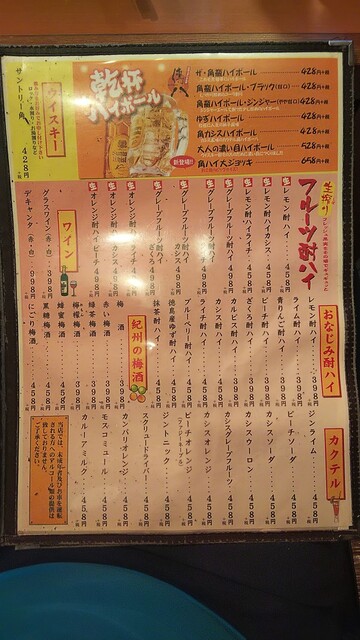 乾杯
ハイボール
ザ・角瓶ハイボール 428円+税
角瓶ハイボール・ブラック(甘口) 428円+税
角瓶ハイボール・ジンジャー(やや甘口) 428円+税
ゆずハイボール 428円+税
角カシスハイボール 428円+税
大人の濃い目ハイボール 528円+税
新登場!!
角ハイ大ジョッキ 658円+税
ウイスキー
サントリー角 428円
生搾り
フルーツ酎ハイ
生 レモン酎ハイ 458円
生 レモン酎ハイカシス 498円
生 レモン酎ハイライチ 498円
生 グレープフルーツ酎ハイ 458円
生 グレープフルーツ酎ハイ
生 グレープフルーツ酎ハイ カシス 498円
生 グレープフルーツ酎ハイ ざくろ 498円
生 オレンジ酎ハイ 458円
生 オレンジ酎ハイライチ 498円
生 オレンジ酎ハイカシス 498円
生 オレンジ酎ハイピーチ 498円
ワイン
グラスワイン(赤・白) 398円
デキャンタ(赤・白) 998円
おなじみ酎ハイ
レモン酎ハイ 398円
ライム酎ハイ 398円
青りんご酎ハイ 398円
ピーチ酎ハイ 398円
ざくろ酎ハイ 398円
カルピス酎ハイ 398円
カシス酎ハイ 398円
ライチ酎ハイ 398円
ブルーベリー酎ハイ
徳島産ゆず酎ハイ
抹茶酎ハイ
紀州の梅酒
梅酒 398円
赤い梅酒
緑茶梅酒
檸檬梅酒
蜂蜜梅酒 458円
黒糖梅酒 458円
にごり梅酒 458円
カクテル
ジンライム 458円
ピーチソーダ 458円
カシスソーダ 458円
カシスウーロン 458円
カシスグレープフルーツ 458円
カシスオレンジ 458円
ピーチオレンジ 458円
(ファジーネーブル)
ジントニック 458円
スクリュードライバー 458円
カンパリオレンジ 458円
モスコミュール 458円
カルーアミルク 458円
当店では、未成年者及びお車を運転
される方へのアルコール類の提供は
致しておりません。
ご了承ください。